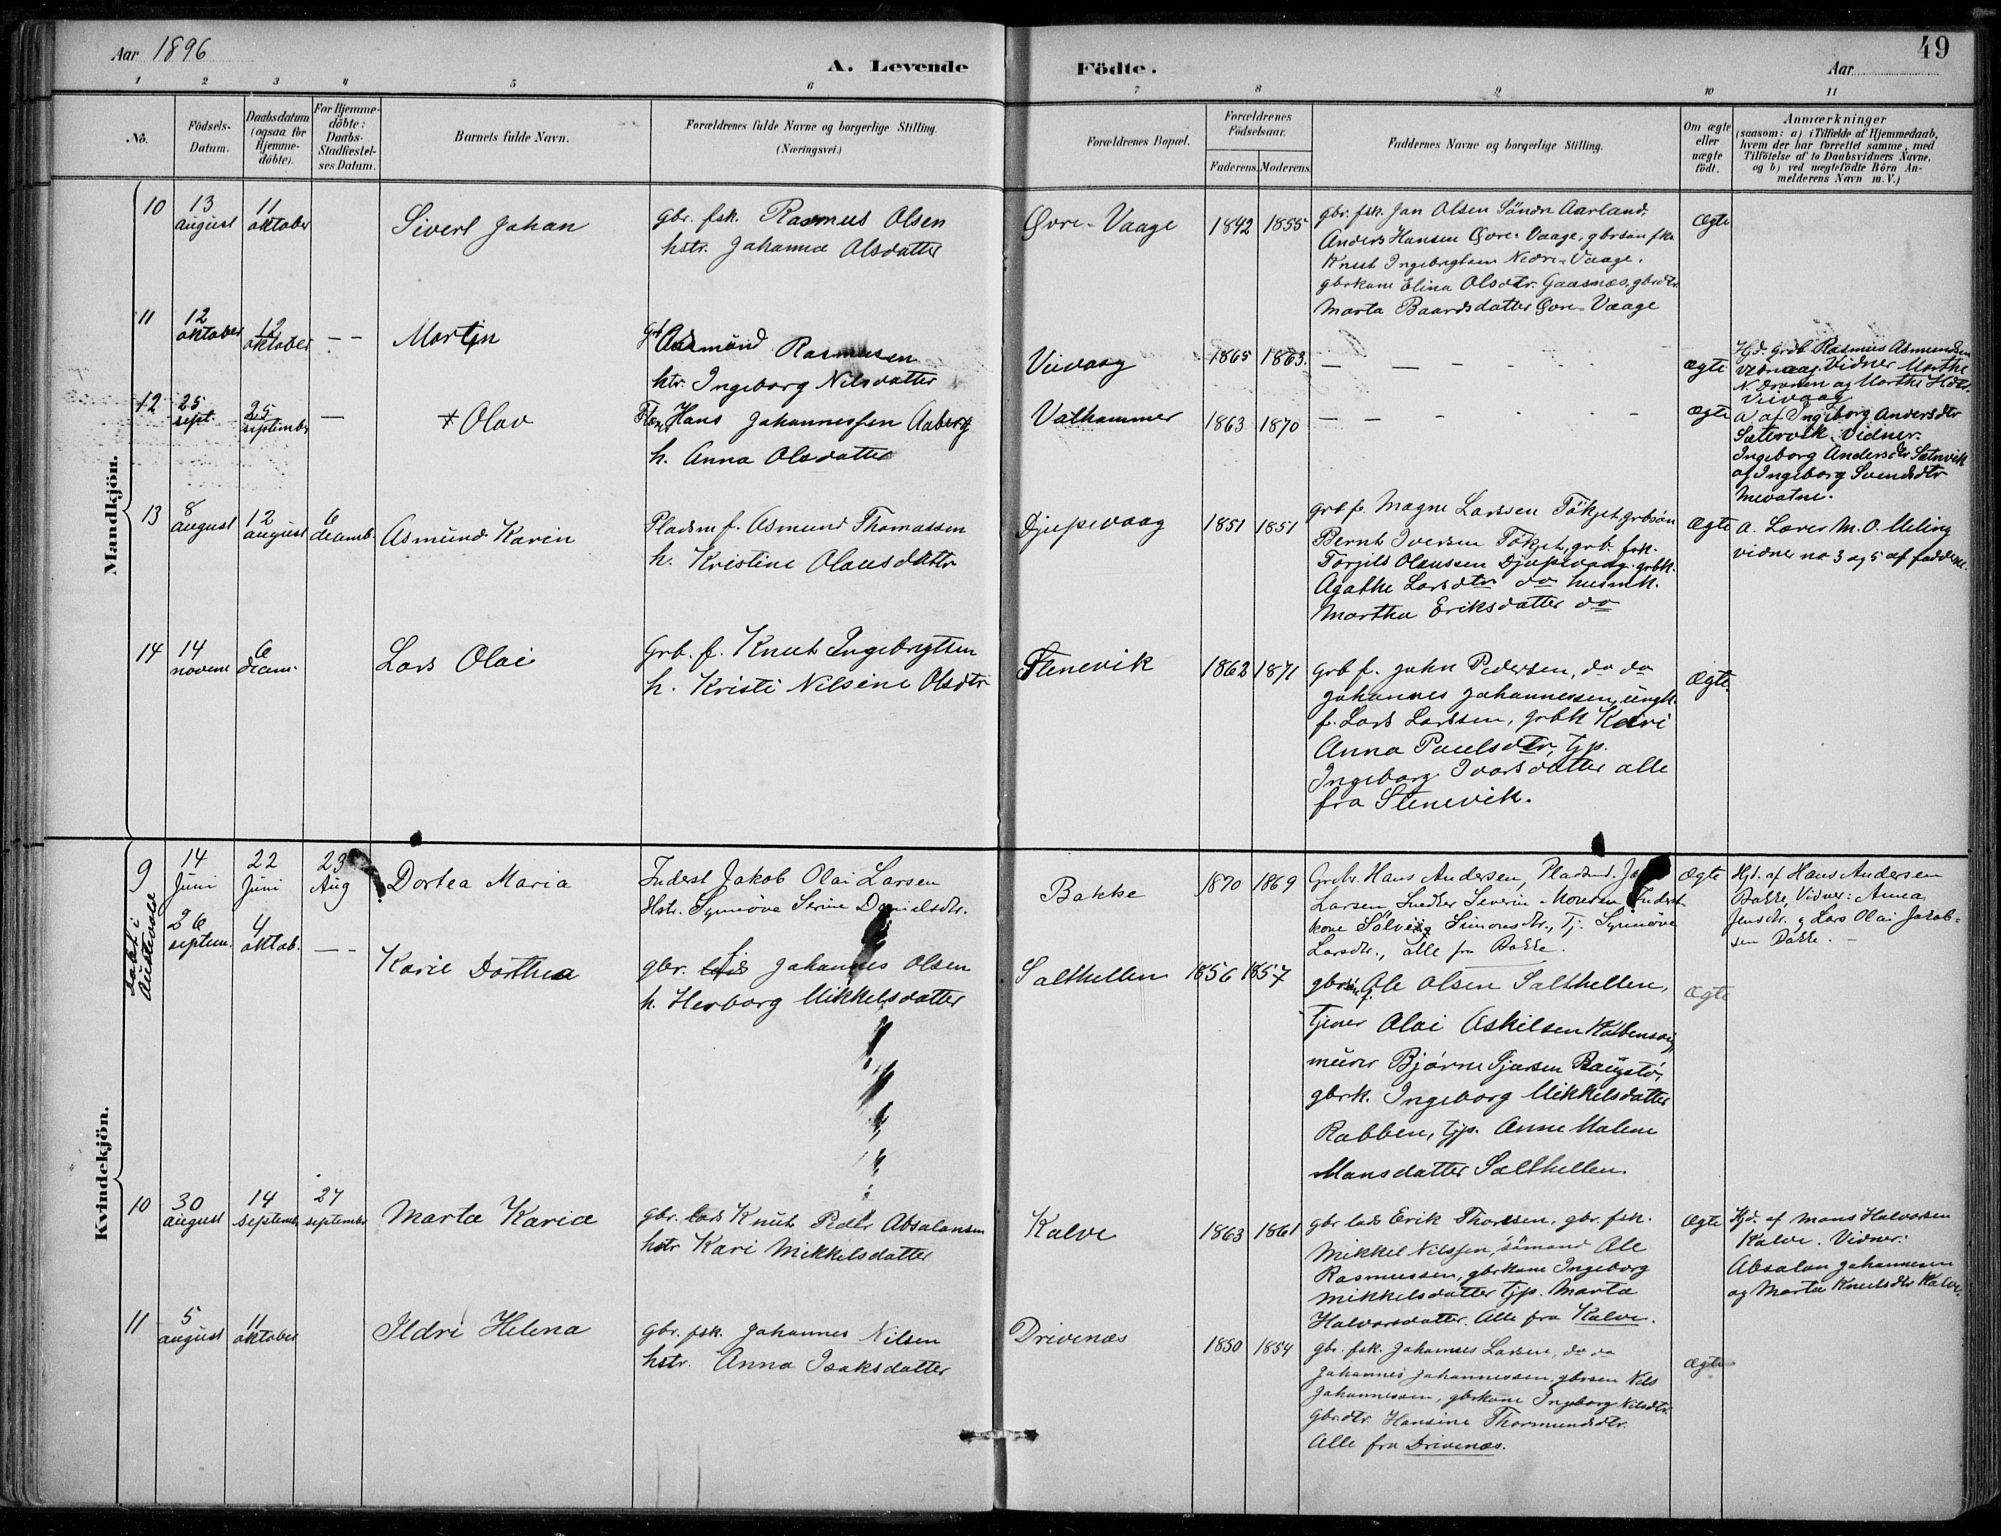 Aar 1896
A. Levende Födte.
Aar
49
1 2 3 4 5 6 7 8 9 10 11
No.
Födsels-Datum.
Daabsdatum (ogsaa for Hjemme-döbte).
For Hjemme-döbte: Daabs-Stadfæstel-ses Datum.
Barnets fulde Navn.
Forældrenes fulde Navne og borgerlige Stilling. (Næringsvei.)
Forældrenes Bopæl.
Forældrenes Födselsaar.
Faderens. Moderens.
Faddernes Navne og borgerlige Stilling.
Om ægte eller uægte födt.
Anmærkninger
(saasom: a) i Tilfælde af Hjemmedaab, hvem der har forrettet samme, med Tilföielse af to Daabsvidners Navne, og b) ved uægtefödte Börn An-melderens Navn m. V.)
Mandkjön.
10 13 august 11 oktober
Sivert Johan
gbr. fsk. Rasmus Olsen
hstr. Johanna Olsdatter
Øvre-Vaage 1842 1855
gbr. fsk. Jan Olsen Söndr Aarland,
Anders Hansen Øvre-Vaage, gbrsøn fsk.
Knut Ingebrigtsen Nedre-Vaage,
gbrkone Elina Olsdtr. Gaasnæs, gbrdtr.
Marta Baardsdatter Øvre-Vaage
Ægte
11 12 oktober 12 oktober — —
Martin
Aasmund Rasmusen
htr. Ingeborg Nilsdatter
Vievaag 1865 1863.
Ægte
Hjd. grdb Rasmus Asmundsen
Vidner Marthe
N. og Marthe
Vievaag
12 25 sept. 25 september —
* Olav
Hans Johannessen Aaberg
h. Anna Olsdatter
Valhammer 1863 1870
Ægte
a af Ingeborg Andersdtr
Sætervik. Vidner.
Ingeborg Andersdtr Sætervik
og Ingeborg Svendsdtr
Mevatne.
13 8 august 12 august 6 decemb.
Asmund Karin
Pladsm f. Asmund Thomassen
h. Kristine Olausdattr
Djupevaag 1851 1851
grb f. Magne Larssen Tökjet, grbsøn
Bernt Iversen Tökjet, grb. fsk.
Torjils Olaussen Djupevaag. grbk.
Agathe Larsdtr do husmk.
Martha Eriksdatter do
Ægte
a. Lærer M. O. Meling
vidner no 3 og 5 af fadderne.
14 14 novem 6 decem.
Lars Olai
Grb. f. Knut Ingebrigtsen
h. Kristi Nilsine Olsdtr
Stenevik 1862 1871
grb f. John Pedersen, do do
Johannes Johannessen, ungk.
f. Lars Larssen, grbk Kari
Anna Paulsdtr, tjp.
Ingeborg Ivarsdatter alle
fra Stenevik.
Ægte.
Kvindekjön.
9 14 Juni 22 Juni 23 Aug
Dortea Maria
Inderst Jakob Olai Larsen
Hstr. Synnøve Serine Danielsdtr.
Bakke 1870 1869
Grbr. Hans Andersen, Pladsm.
Larsen Snedker Severin Monsen Inderst
kone Sølvei Simonsdtr., Tj. Synnøve
Larsdtr., alle fra Bakke.
Ægte
Hjd. af Hans Andersen
Bakke, Vidner: Anna
Jensdtr. og Lars Olai Jakob-
sen Bakke. —
döbt i Austevold
26 septem. 4 oktob. — —
Karie Dorthea
gbr. Johannes Olsen
h. Herborg Mikkelsdatter
Salthellen 1856 1857
gbr Ole Olsen Salthellen,
tjener Olai Askilsen
murer Bjørne
gbrk. Ingeborg Mikkelsdatter
Rabben, tjp. Anne Malene
Mansdatter Salthellen.
Ægte
10 30 august 14 septemb. 27 september
Marta Karia
gbr. lods Knut Peder Absalonsen
hstr Kari Mikkelsdatter
Kalve 1863 1861
gbr lods Erik Thorsen, gbr. fsk.
Mikkel Nilssen, sömand Ole
Rasmussen, gbrkone Ingeborg
Mikkelsdatter tjp. Marta
Halvorsdatter. Alle fra Kalve.
Ægte
Hjd. af Mons Halvorsen
Kalve. Vidner:
Absalon Johannesen
og Marta Knutsdtr Kalve.
11 5 august 11 oktober
Ildri Helena
gbr. fsk. Johannes Nilsen
hstr. Anna Isaksdatter
Drivenæs 1850 1854
gbr. fsk. Johannes Larsen, do do
Johannes Johannessen, gbrsøn Nils
Johannessen, gbrkone Ingeborg Nilsdtr.
Gbrdtr. Hansine Thormundsdtr.
Alle fra Drivenæs.
Ægte